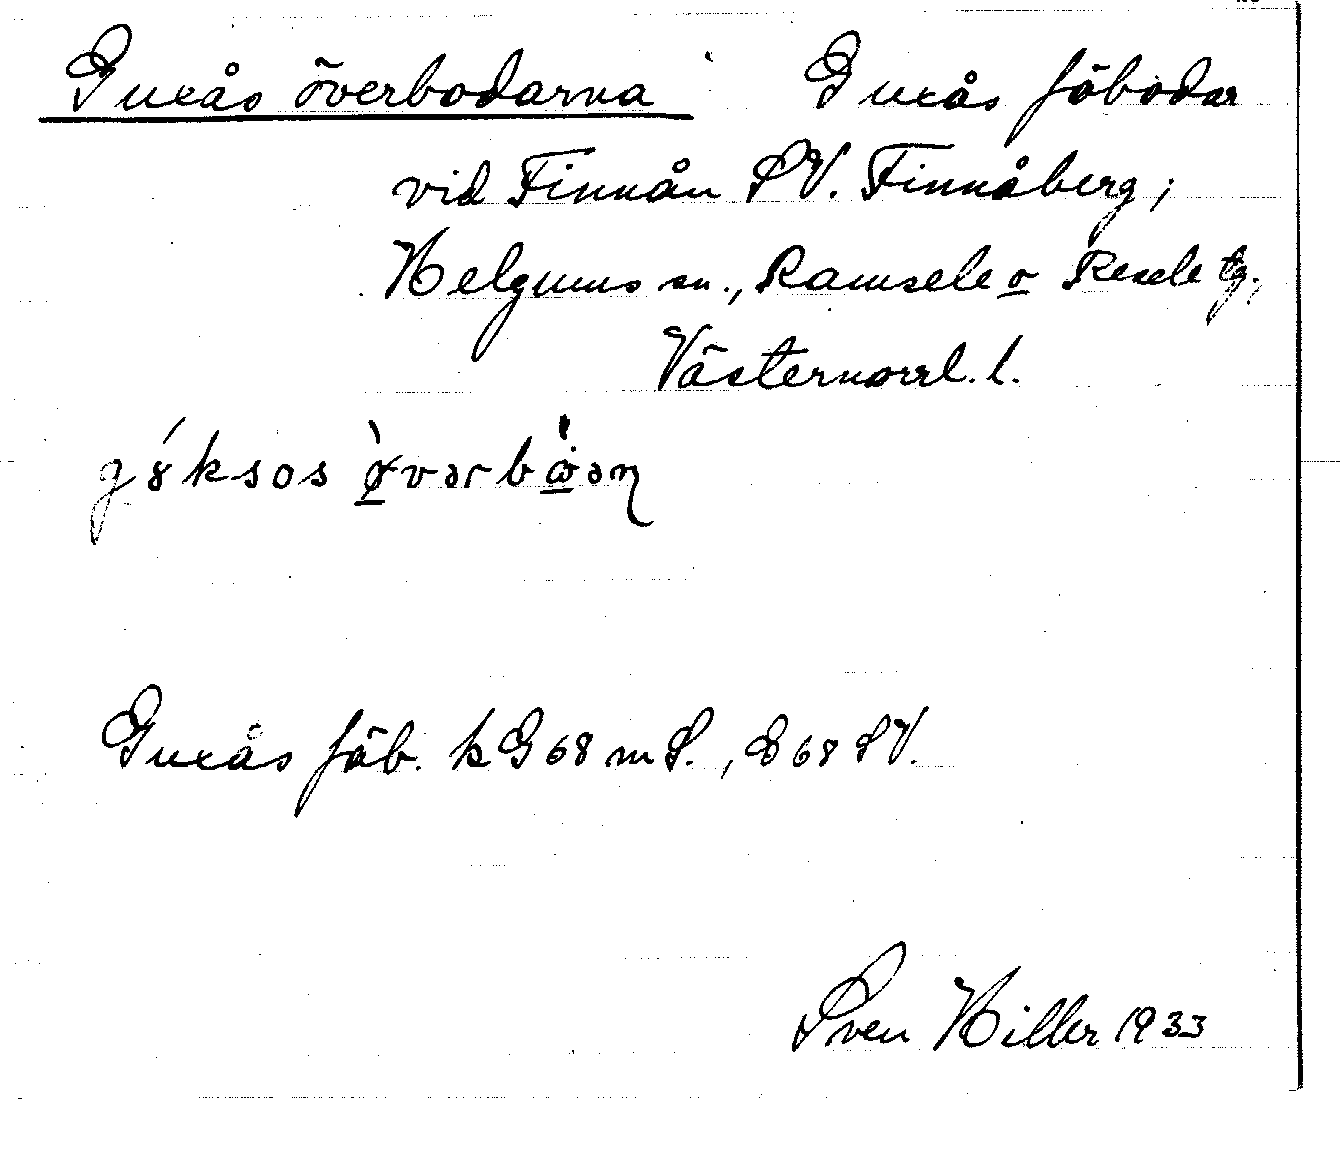 Guxås överbodarna Guxås fäbodar
vid Finnån SV. Finnåberg;
Helgums sn., Ramsele o Resele tg.,
Västernorrl. l.
Guxås fäb. k G 68 m S., E 68 SV.
Sven Hiller 1933